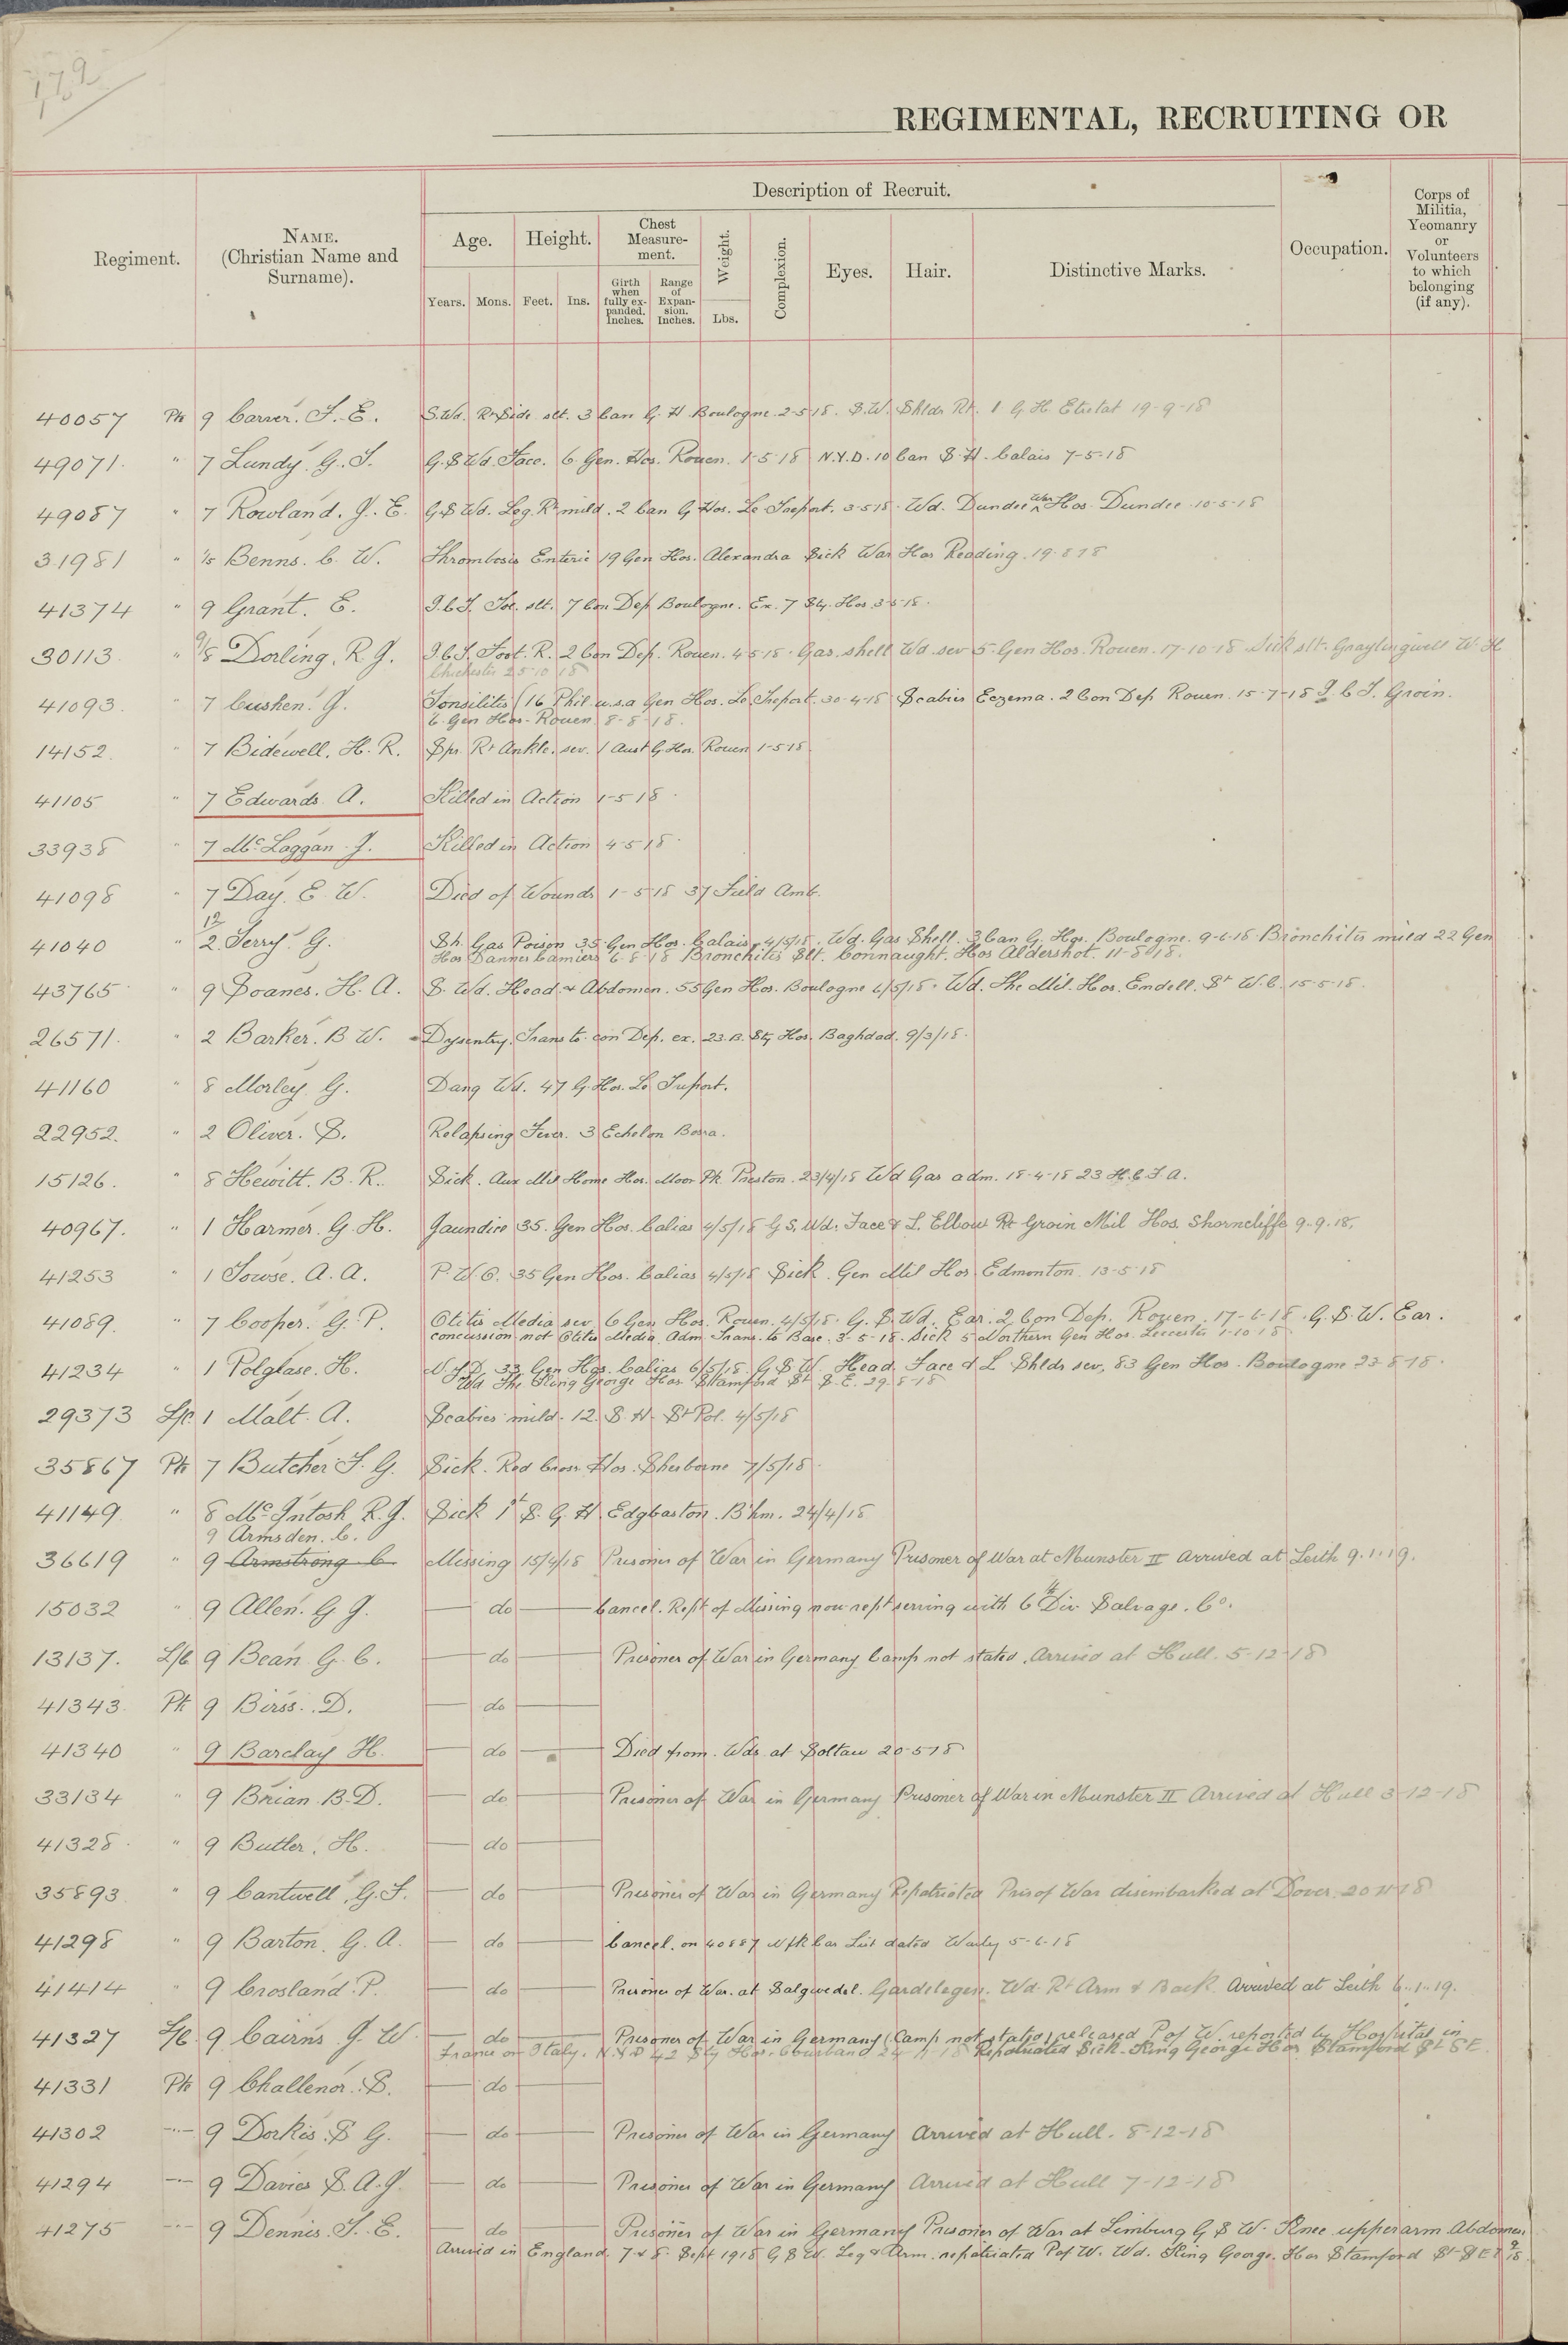 179
REGIMENTAL, RECRUITING OR
Regiment. NAME. (Christian Name and Surname). Description of Recruit. Occupation. Corps of Militia, Yeomanry or Volunteers to which belonging (if any).
Age. Height. Chest Measurement. Weight. Complexion. Eyes. Hair. Distinctive Marks.
Years. Mons. Feet. Ins. Girth when fully expanded. Inches. Range of Expansion. Inches. Lbs.
40057 Pte 9 Carver. F. E. S. Wd. Rt Side slt. 3 Can G. H. Boulogne. 2-5-18. S.W. Shldr Rt. 1 G H Etretat 19-9-18
49071. " 7 Lundy. G. T. G.S Wd. Face. 6. Gen. Hos. Rouen. 1-5-18 N.Y.D. 10 Can S. H. Calais 7-5-18
49087 " 7 Rowland. J. E. G.S Wd. Leg. Rt mild. 2 Can G Hos. Le Treport. 3-5-18. Wd. Dundee War Hos. Dundee 10-5-18
31981 " 1/5 Benns. C. W. Thrombosis Enteric 19 Gen Hos. Alexandra Sick War Hos Reading. 19-8-18
41374 " 9 Grant. E. I.C.T. Toe. slt. 7 Con Dep. Boulogne. Ex. 7 Sty. Hos 3-5-18.
30113 " 9/8 Dorling. R. J. I.C.T. Foot. R. 2 Con Dep. Rouen. 4-5-18. Gas. shell Wd sev 5 Gen Hos. Rouen. 17-10-18 Sick slt. Graylingwell W. H
Chichester 25 10 18
41093. " 7 Cushen. J. Tonsilitis (16 Phil. u.s.a Gen Hos. Le. Treport. 30-4-18 Scabies Eczema. 2 Con Dep Rouen. 15-7-18 I.C.T. Groin.
6. Gen Hos. Rouen 8-8-18.
14152. " 7 Bidewell. H. R. Spr. Rt Ankle. sev. 1 Aust G. Hos. Rouen 1-5-18
41105 " 7 Edwards. A. Killed in Action 1-5-18
33938 " 7 McLaggan. J. Killed in Action 4-5-18
41098 " 7 Day. E. W. Died of Wounds 1-5-18 37 Field Amb.
12
41040 " 2 Terry. G. Sh. Gas Poison 35 Gen Hos. Calais 4/5/18. Wd. Gas Shell. 3 Can G. Hos. Boulogne. 9-6-18. Bronchitis mild 22 Gen
Hos Dannes Camiers 6-8-18 Bronchitis Slt. Connaught. Hos Aldershot. 11-8-18.
43765 " 9 Soanes. H. A. S. Wd. Head. & Abdomen. 55 Gen Hos. Boulogne 4/5/18. Wd. The Mil. Hos. Endell. St W.C. 15-5-18.
26571. " 2 Barker. B. W. Dysentry. Trans to. con Dep. ex. 23. B. Sty Hos. Baghdad. 9/3/18.
41160 " 8 Morley. G. Dang Wd. 47 G. Hos. Le Treport.
22952. " 2 Oliver. S. Relapsing Fever. 3 Echelon Bosra.
15126. " 8 Hewitt. B. R. Sick. Aux Mil Home Hos. Moor Pk. Preston. 23/4/18 Wd Gas adm. 18-4-18 23 H.C.F.A.
40967. " 1 Harmer. G. H. Jaundice 35. Gen Hos. Calias 4/5/18 G S. Wd. Face & L. Elbow Rt Groin Mil Hos. Shorncliffe 9.9.18.
41253 " 1 Towse. A. A. P. U. O. 35 Gen Hos. Calias 4/5/18 Sick. Gen Mil Hos Edmonton. 13-5-18
41089. " 7 Cooper. G. P. Otitis Media sev 6 Gen Hos. Rouen. 4/5/18. G. S. Wd. Ear. 2 Con Dep. Rouen. 17-6-18. G.S.W. Ear.
concussion not Otitis Media. Adm. Trans. to Base. 3-5-18. Sick 5 Northern Gen Hos. Leicester 1-10-18
41234 " 1 Polglase. H. N.Y.D. 33 Gen Hos. Calias 6/5/18. G S W. Head. Face & L Shldr sev. 83 Gen Hos. Boulogne 23-8-18.
Wd The King George Hos Stamford St S.E. 29-8-18
29373 L/c. 1 Malt. A. Scabies mild. 12. S. H. St Pol. 4/5/18
35867 Pte 7 Butcher F. G. Sick. Red Cross Hos. Sherborne 7/5/18
41149 " 8 McIntosh. R. J. Sick 1st S. G. H. Edgbaston. B'hm. 24/4/18
9 Armsden. C.
36619 " 9 Armstrong C Missing 15/4/18 Prisoner of War in Germany Prisoner of War at Munster II Arrived at Leith 9.1.19.
15032 " 9 Allen. G J. do Cancel. Rept of Missing now rept serving with 6th Div. Salvage. Co.
13137. L/C 9 Bean. G. C. do Prisoner of War in Germany Camp not stated. Arrived at Hull. 5-12-18
41343. Pte 9 Birss. D. do
41340 " 9 Barclay H. do Died from. Wds at Soltau 20-5-18
33134 " 9 Brian B. D. do Prisoner of War in Germany Prisoner of War in Munster II Arrived at Hull 3-12-18
41328. " 9 Butler. H. do
35893 " 9 Cantwell. G. F. do Prisoner of War in Germany Repatriated Pris of War disembarked at Dover. 20 11 18
41298 " 9 Barton. G. A. do Cancel. on 40887 Nflk Cas List dated Warley 5-6-18
41414 " 9 Crosland. P. do Prisoner of War. at Salzwedel. Gardelegen. Wd. Rt Arm & Back. Arrived at Leith 6.1.19.
41327 L/C. 9 Cairns. J. W. do Prisoner of War in Germany (Camp not stated) released P of W. reported by Hospital in
France or Italy. N.Y.D 42 Sty Hos. 24-11-18 Repatriated Sick. King George Hos. Stamford St SE
41331 Pte 9 Challenor. S. do
41302 " 9 Dorkis. S G. do Prisoner of War in Germany Arrived at Hull. 8-12-18
41294 " 9 Davies S. A. J. do Prisoner of War in Germany Arrived at Hull 7-12-18
41275 " 9 Dennis. F. E. do Prisoner of War in Germany Prisoner of War at Limburg G S W. Knee upperarm Abdomen
Arrived in England. 7 & 8. Sept 1918 G S W. Leg & Arm. repatriated P of W. Wd. King George. Hos Stamford St S E